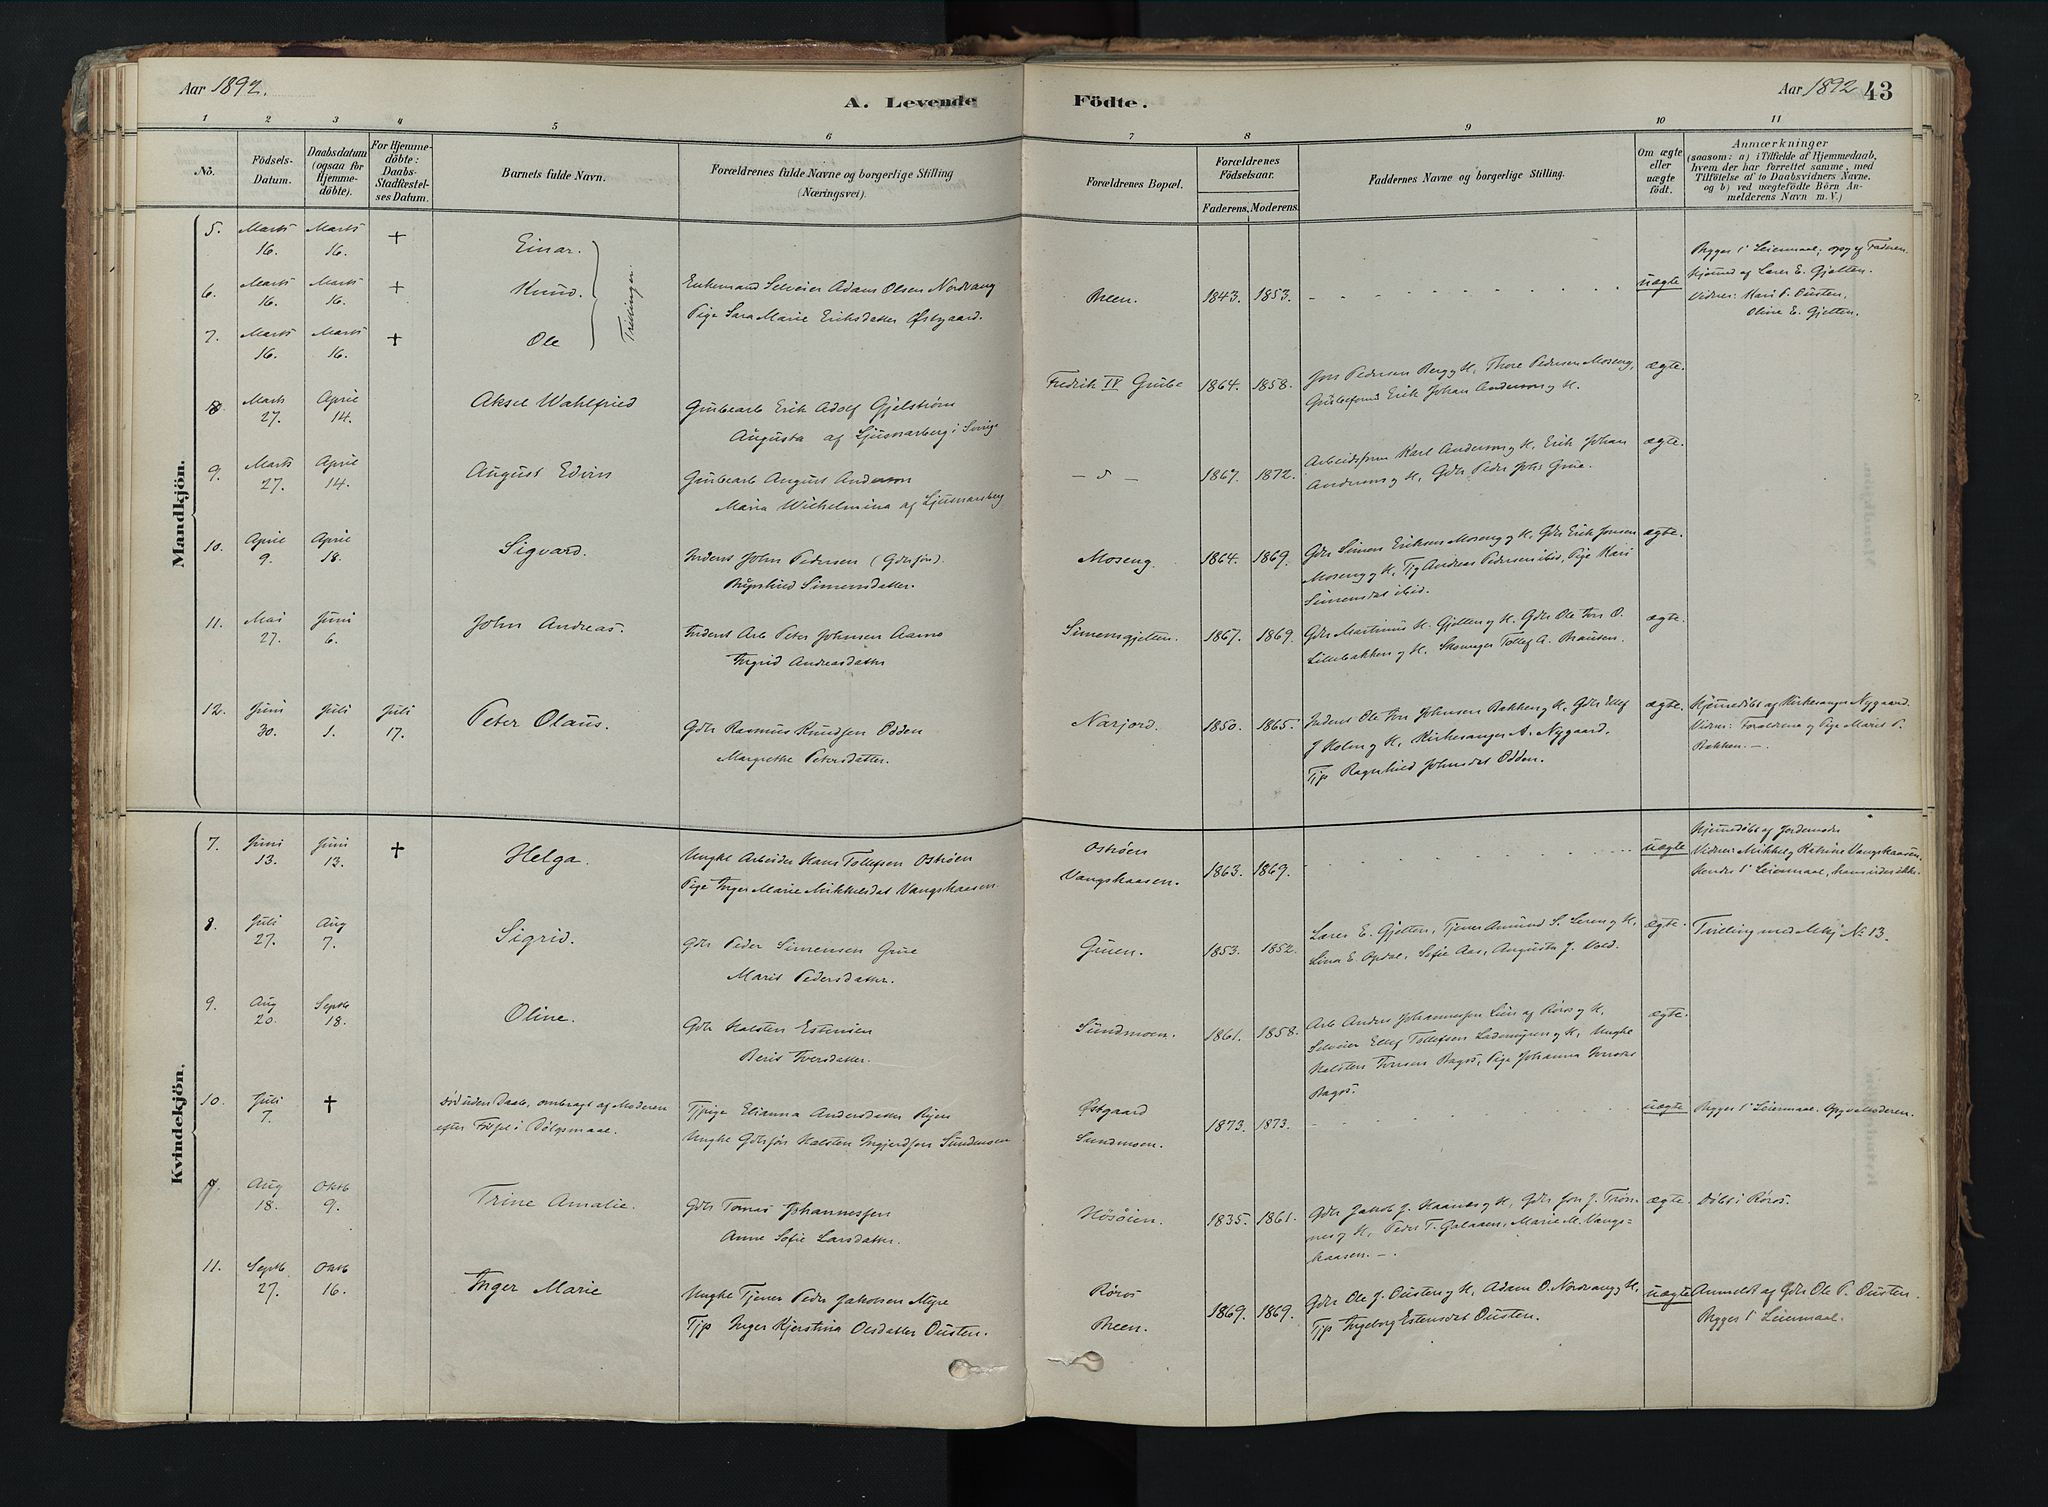 Aar 1892.
A. Levende Födte.
Aar 1892 43
1 2 3 4 5 6 7 8 9 10 11
No.
Födsels-Datum.
Daabsdatum (ogsaa for Hjemme-döbte).
For Hjemme-döbte: Daabs-Stadfæstel-ses Datum.
Barnets fulde Navn.
Forældrenes fulde Navne og borgerlige Stilling
(Næringsvei).
Forældrenes Bopæl.
Forældrenes Födselsaar.
Faderens. Moderens.
Faddernes Navne og borgerlige Stilling.
Om ægte eller uægte födt.
Anmærkninger
(saasom: a) i Tilfælde af Hjemmedaab,
hvem der har forrettet samme, med
Tilföielse af to Daabsvidners Navne.
og b) ved uægtefödte Börn An-
melderens Navn m. V.)
Mandkjön.
5. Marts 16. Marts 16. + Einar.
6. Marts 16. Marts 16. + Knud.
7. Marts 16. Marts 16. + Ole
Trillinger.
Enkemand Selveier Adam Olsen Nordvang
Pige Sara Marie Eriksdatter Østgaard.
Breen. 1843. 1853. uægte
Begges 1' Leiermaal, opg. af Faderen.
Hjemmed. af Lærer E. Gjelten.
Vidner: Kari P. Ousten,
Oline E. Gjelten.
8. Marts 27. April 14. Aksel Wahlfried
Grubearb Erik Adolf Gjelström
Augusta af Ljusnarsberg i Sverige
Fredrik IV Grube 1864. 1858.
Jon Pedersen Berg og H, Thore Pedersen Moseng,
Erik Johan Anderson og H.
ægte.
9. Marts 27. April 14. August Edvin
Grubearb August Anderson
Maria Wilhelmina af Ljusnarsberg
1867. 1872.
Karl Anderson og H, Erik Johan
Anderson og H, Gdr Peder Johs Grue.
ægte.
10. April 9. April 18. Sigvard.
Inderst John Pedersen (Gdrsøn).
Brynhild Simensdatter.
Moseng. 1864. 1869.
Gdr Simen Eriksen Moseng og H, Gdr Erik Jensen
Moseng og H, Tjg Andreas Pedersen ibid, Pige Kari
Simensdat ibid.
ægte.
11. Mai 27. Juni 6. John Andreas.
Inderst Arb Peter Johnsen Aamo
Ingrid Andreasdatter
Simensgjelten. 1867. 1869.
Gdr Martinus H. Gjelten og H, Gdr Ole Iver O.
Lillebakken og H, Skomager Tollef A. Brausen.
ægte.
12. Juni 30. Juli 1. Juli 17. Peter Olaus.
Gdr Rasmus Knudsen Odden
Margrethe Petersdatter.
Narjord. 1850. 1865.
Inderst Ole Iver Johnsen Bakken og H, Gdr Ellef
J Holm og H, Kirkesanger A. Nygaard.
Tjp Ragnhild Johnsdat Odden.
ægte.
Hjemmedöbt af Kirkesanger Nygaard.
Vidner: Forældrene og Pige Marit P.
Bakken. —.
Kvindekjön.
7. Juni 13. Juni 13. + Helga.
Ungke Arbeider Hans Tollefsen Ostrøen
Pige Inger Marie Mikkelsdat Vangskaasen.
Ostrøen
Vangskaasen. 1863. 1869. uægte
Hjemmedöbt af Jordemoder
Vidner: Mikkel og Katrine Vangskaasen.
Hendes 1' Leiermaal, hans vides ikke.
8. Juli 27. Aug 7. Sigrid.
Gdr Peder Simensen Grue
Marit Pedersdatter.
Gruen. 1853. 1852.
Lærer E. Gjelten, Tjener Amund S. Leren og H,
Lina E. Opdal, Sofie Aas, Augusta J. Vold.
ægte. Tvilling med Mkj No 13.
9. Aug 20. Septb 18. Oline.
Gdr Halsten Estensen
Berit Iversdatter.
Sundmoen. 1861. 1858.
Arb Anders Johannessen Lien af Røros og H,
Selveier Ellef Tollefsen og H, Ungke
Halsten Iversen Bagos, Pige Johanna
Bagos.
ægte.
10. Juli 7. +
Død uden Daab, ombragt af Moderen
efter Födsel i Dölgsmaal.
Tjpige Elianna Andersdatter Ryen
Ungke Gdrsøn Halsten Ingjerdsen Sundmoen
Østgaard
Sundmoen. 1873. 1873. uægte
Begges 1' Leiermaal. Opg. Moderen.
Aug 18. Oktb 9. Trine Amalie.
Gdr Tomas Johannessen
Anne Sofie Larsdatter.
Høsøien. 1835. 1861.
Gdr Jakob J. Haanes og H, Gdr Jon J. Trøn-
nes og H, Peder T. Galaaen, Marie M. Vangs-
kaasen. —.
ægte. Döbt i Røros.
11. Septb. 27. Oktb 16. Inger Marie
Ungke Tjener Peder Jakobsen Myre
Tjp Inger Kjerstina Olsdatter Ousten.
Røros
Breen. 1869. 1869.
Gdr Ole J. Ousten og H, Adam O. Nordvang og H,
Tjp Ingeborg Estensdat Ousten.
uægte
Anmeldt af Gdr Ole P. Ousten.
Begges 1' Leiermaal.